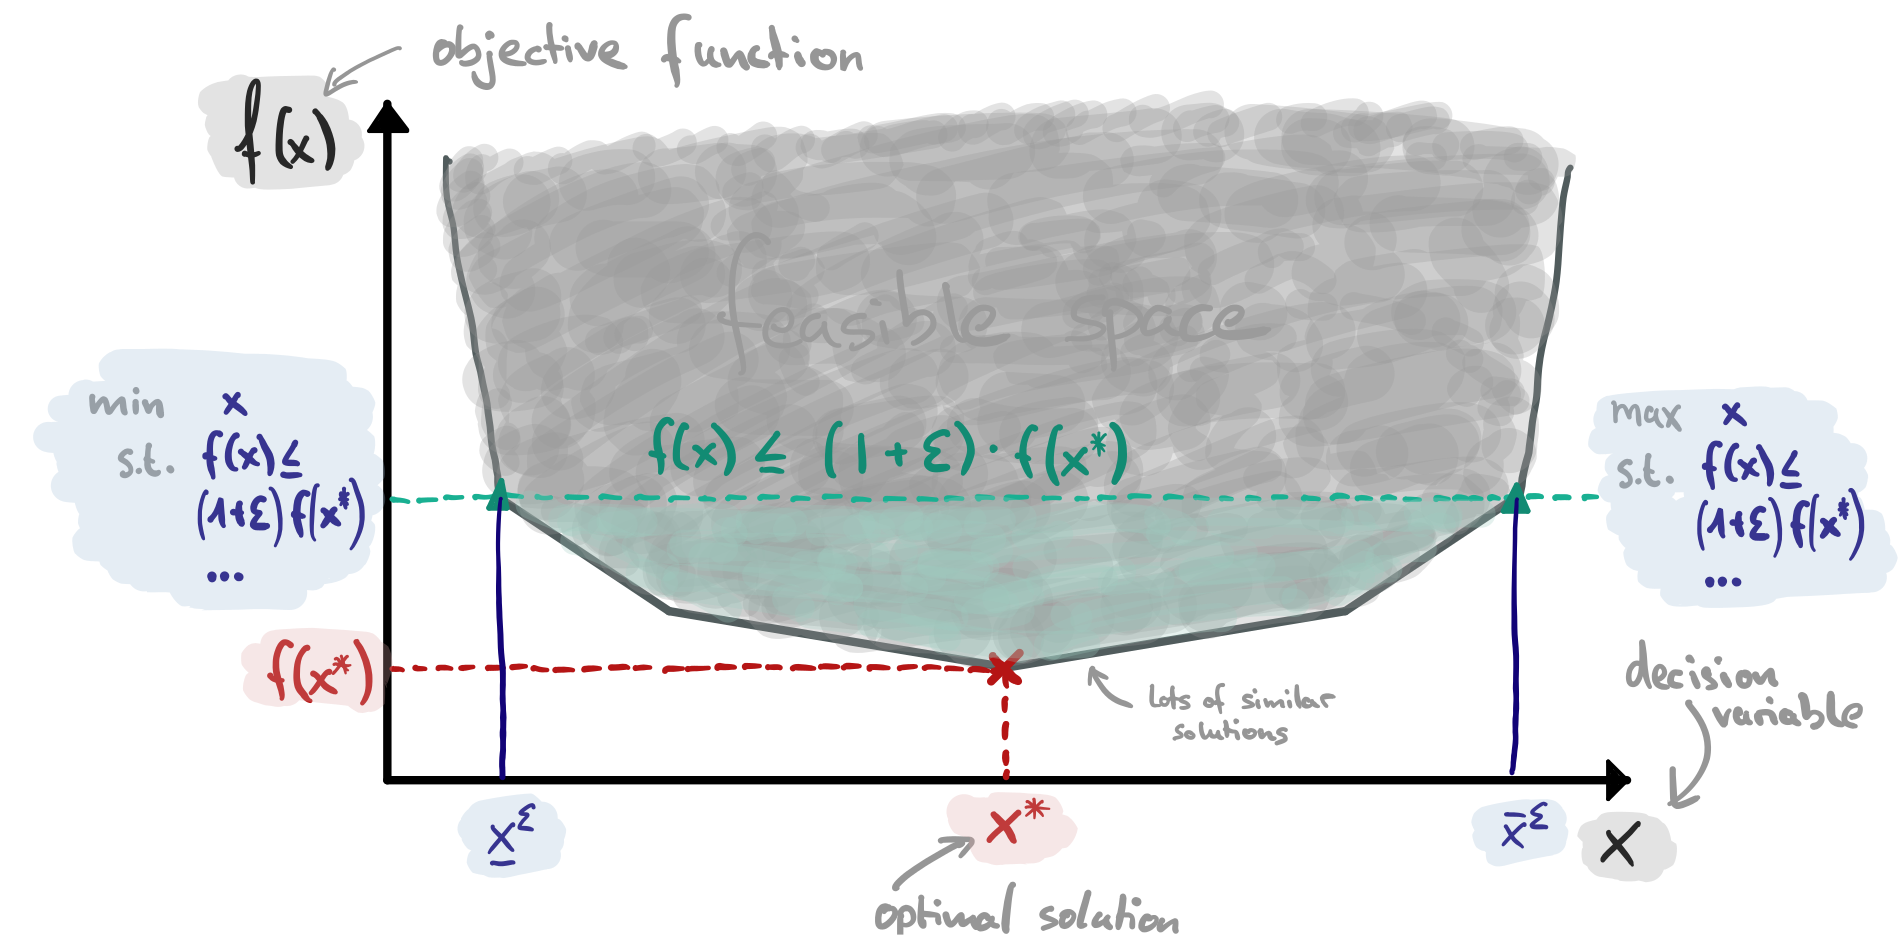 objective function
f(x)
feasible space
min x
s.t. f(x) ≤
(1+ε) f(x*)
...
f(x) ≤ (1+ε)·f(x*)
max x
s.t. f(x) ≤
(1+ε) f(x*)
...
f(x*)
lots of similar
solutions
decision
variable
x̲^ε
x*
x̄^ε
x
optimal solution